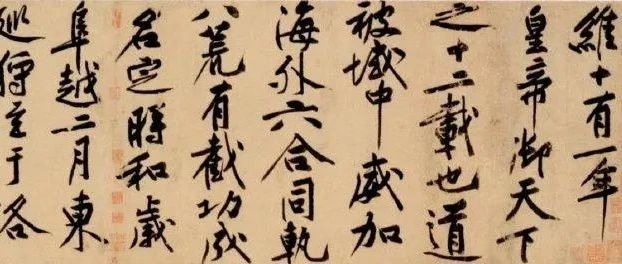 維十有一年
皇帝御天下
之十二載也道
被域中威加
海外六合同軌
八荒有截功成
名定時和歲
阜越二月東
至于